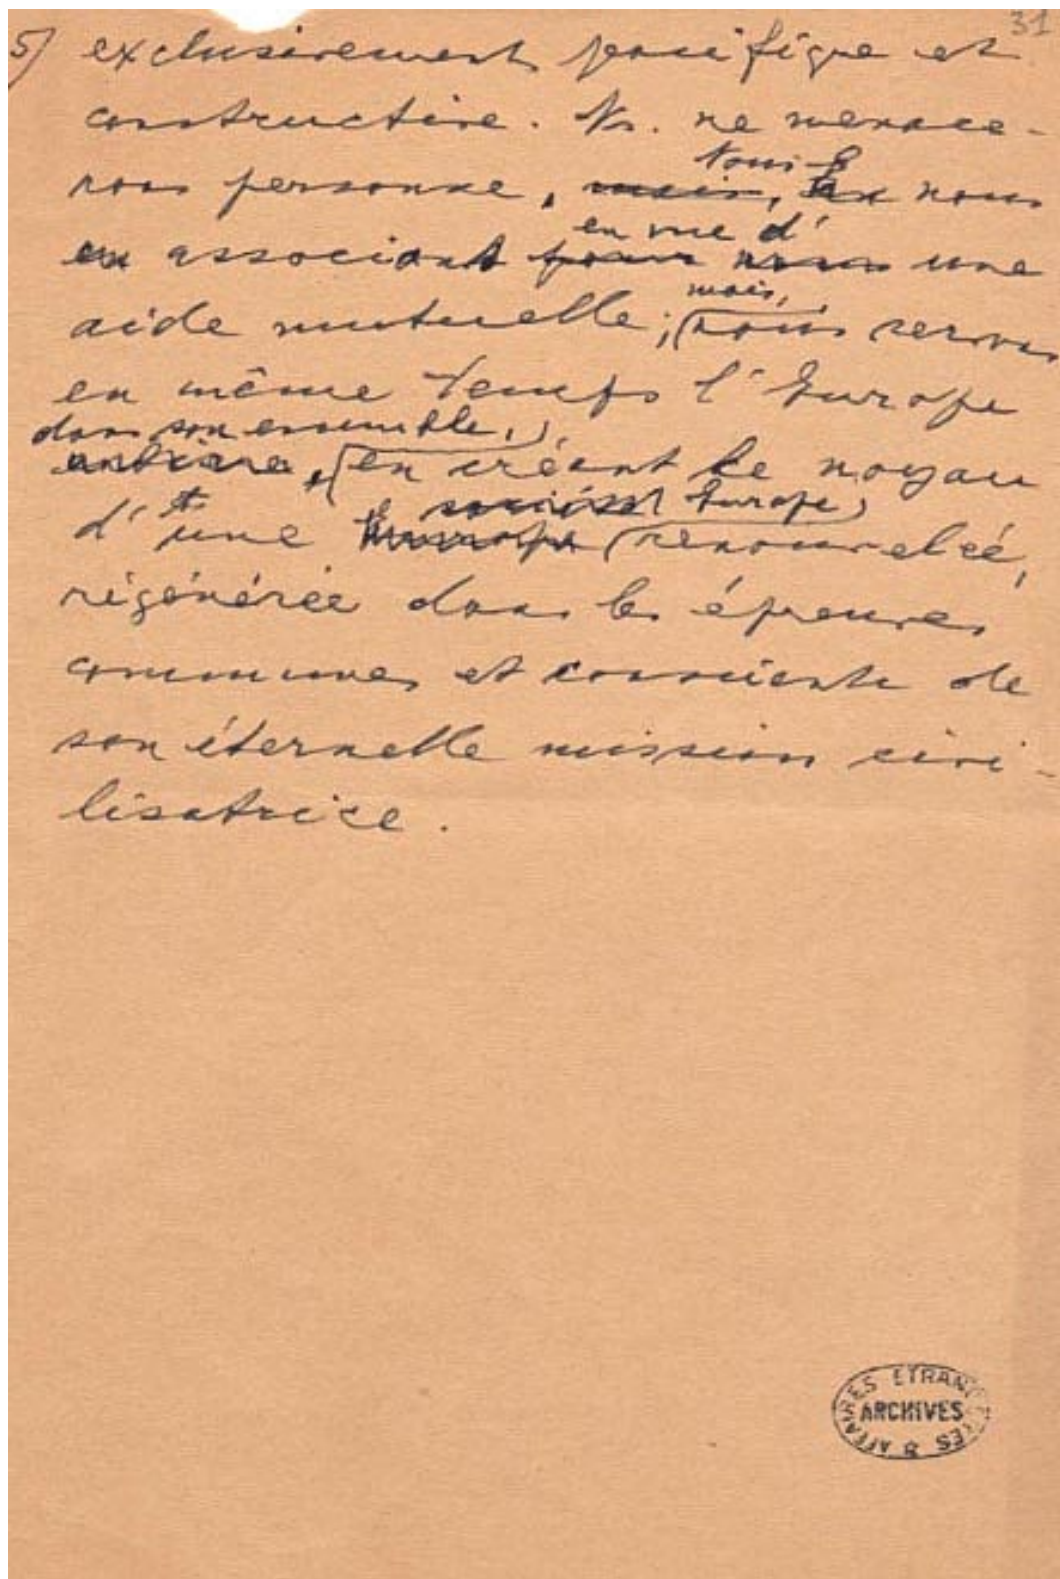 31
5) exclusivement pacifique et
constructive. Ns. ne menace-
rons personne,
mais, nous
en vue d'
en associant pour nous une
mais,
aide mutuelle; nous servons
en même temps l'Europe
dans son ensemble,
entière, en créant le noyau
Europe
d'une renouvelée,
régénérée dans les épreuves
communes et consciente de
son éternelle mission civi-
lisatrice.
AFFAIRES ETRANGERES
ARCHIVES